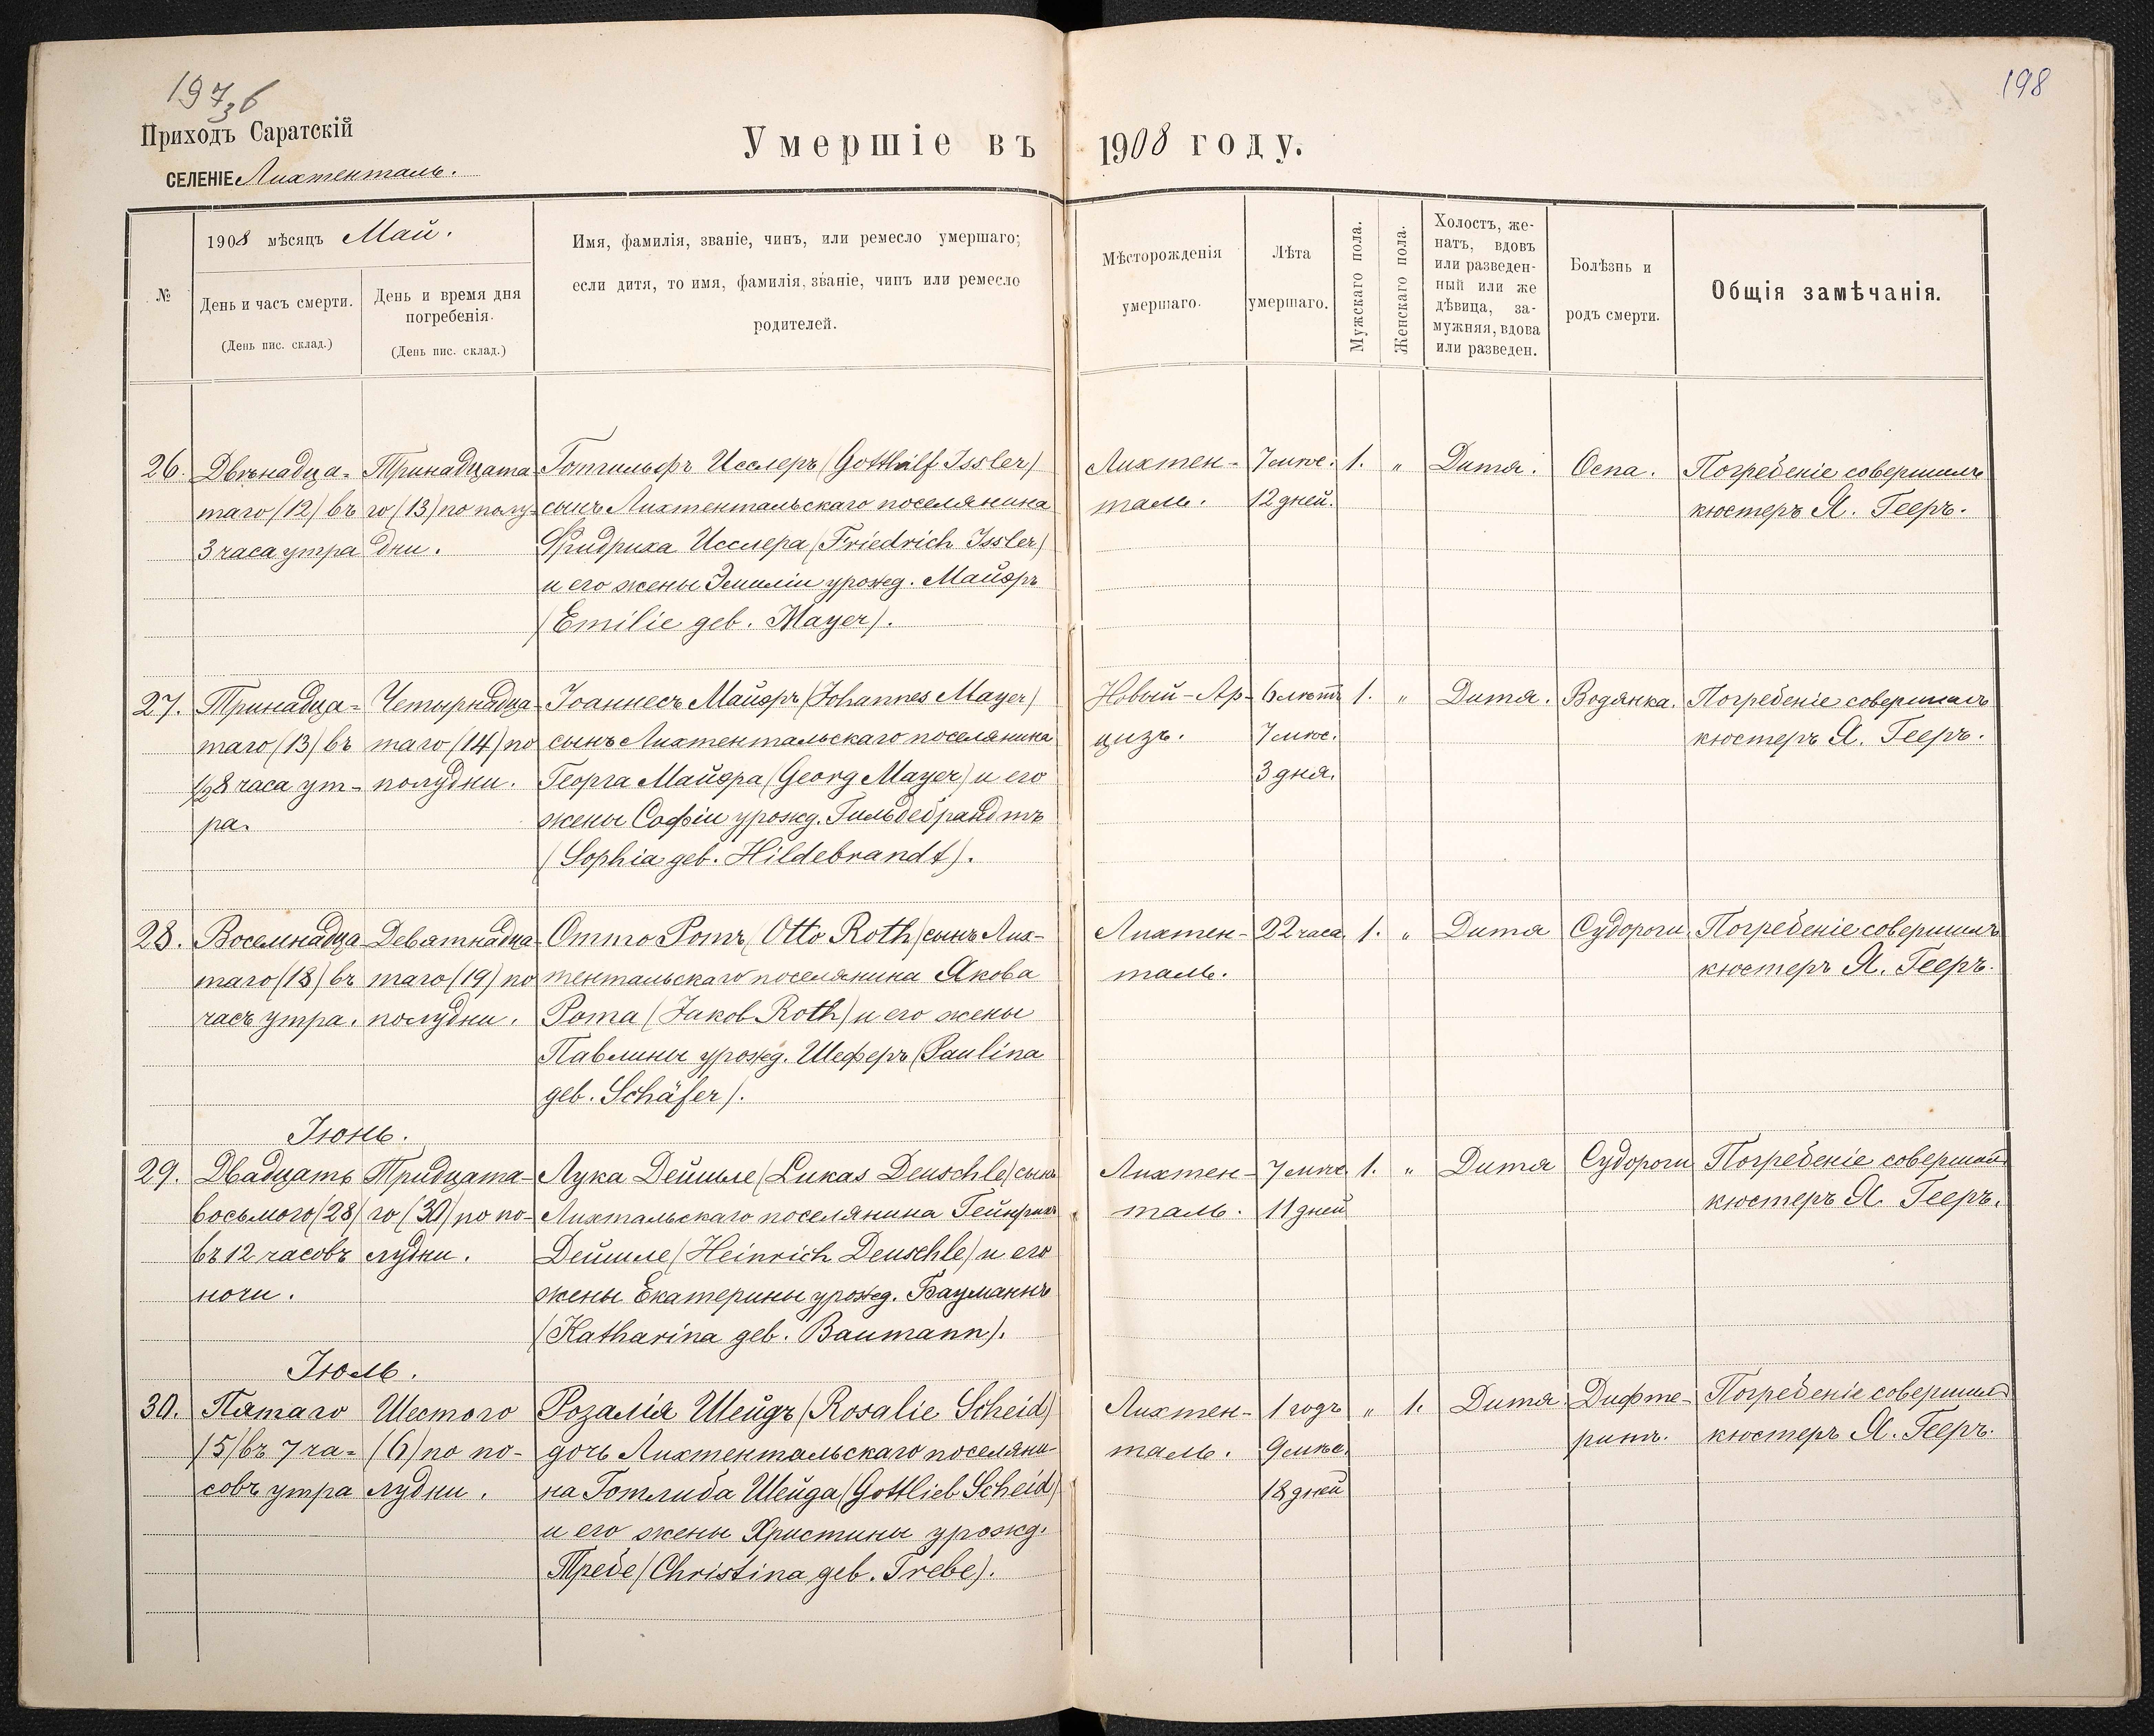 197 зв
198
Приходъ Саратскій
СЕЛЕНІЕ Лихтенталь.
Умершіе въ 1908 году.
№
1908 мѣсяцъ Май.
День и часъ смерти.
(День пис. склад.)
День и время дня
погребенія.
(День пис. склад.)
Имя, фамилія, званіе, чинъ, или ремесло умершаго;
если дитя, то имя, фамилія, званіе, чинъ или ремесло
родителей.
Мѣсторожденія
умершаго.
Лѣта
умершаго.
Мужскаго пола.
Женскаго пола.
Холостъ, же-
натъ, вдовъ
или разведен-
ный или же
дѣвица, за-
мужняя, вдова
или разведен.
Болѣзнь и
родъ смерти.
Общія замѣчанія.
26. Двѣнадца- Тринадцата- Готгильфъ Исслеръ (Gotthilf Issler) Лихтен- 7 мѣс. 1. " Дитя. Оспа. Погребеніе совершилъ
таго (12) въ го (13) по полу- сынъ Лихтентальскаго поселянина таль. 12 дней. кюстеръ Я. Гееръ.
3 часа утра дни. Фридриха Исслера (Friedrich Issler)
и его жены Эмиліи урожд. Майэръ
(Emilie geb. Mayer).
27. Тринадца- Четырнадца- Іоаннесъ Майэръ (Johannes Mayer) Новый-Ар- 6 лѣтъ 1. " Дитя. Водянка. Погребеніе совершилъ
таго (13) въ таго (14) по сынъ Лихтентальскаго поселянина цизъ. 7 мѣс. кюстеръ Я. Гееръ.
1/2 8 часа ут- полудни. Георга Майэра (Georg Mayer) и его 3 дня.
ра. жены Софіи урожд. Гильдебрандтъ
(Sophia geb. Hildebrandt).
28. Восемнадца- Девятнадца- Отто Ротъ (Otto Roth) сынъ Лих- Лихтен- 22 часа 1. " Дитя Судороги Погребеніе совершилъ
таго (18) въ таго (19) по тентальскаго поселянина Якова таль. кюстеръ Я. Гееръ.
часъ утра. полудни. Рота (Jakob Roth) и его жены
Павлины урожд. Шеферъ (Paulina
geb. Schäfer).
Іюнь.
29. Двадцать Тридцата- Лука Дейшле (Lukas Deuschle) сынъ Лихтен- 7 мѣс 1. " Дитя Судороги Погребеніе совершилъ
восьмого (28) го (30) по по- Лихтальскаго поселянина Гейнриха таль. 11 дней кюстеръ Я Гееръ.
въ 12 часовъ лудни. Дейшле (Heinrich Deuschle) и его
ночи. жены Екатерины урожд. Бауманнъ
(Katharina geb. Baumann).
Іюль.
30. Пятаго Шестого Розалія Шейдъ (Rosalie Scheid) Лихтен- 1 годъ " 1. Дитя Дифте- Погребеніе совершилъ
(5) въ 7 ча- (6) по по- дочь Лихтентальскаго поселяни- таль. 9 мѣс. ритъ. кюстеръ Я. Гееръ.
совъ утра лудни. на Готлиба Шейда (Gottlieb Scheid) 18 дней
и его жены Христины урожд.
Требе (Christina geb. Trebe).